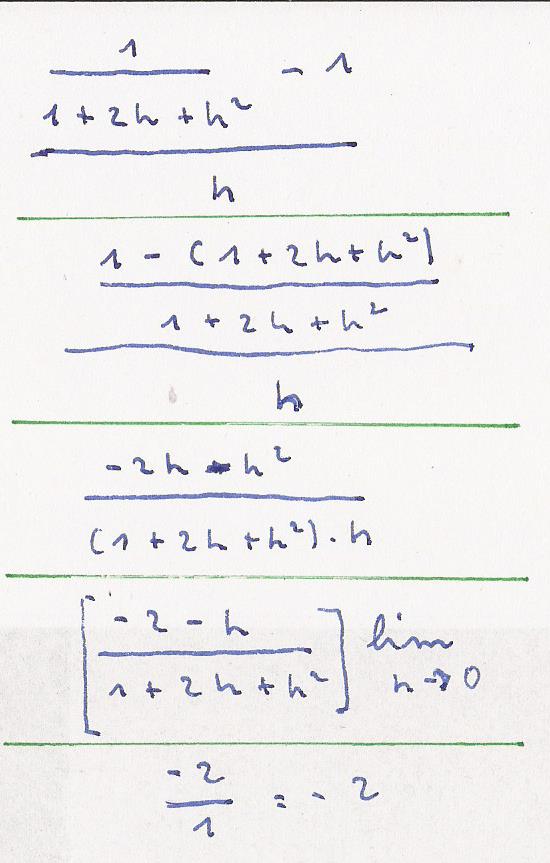 1
- 1
1 + 2h + h²
h
1 - (1 + 2h + h²)
1 + 2h + h²
h
-2h - h²
(1 + 2h + h²) · h
[ -2 - h ] lim
1 + 2h + h² h→0
-2
= - 2
1